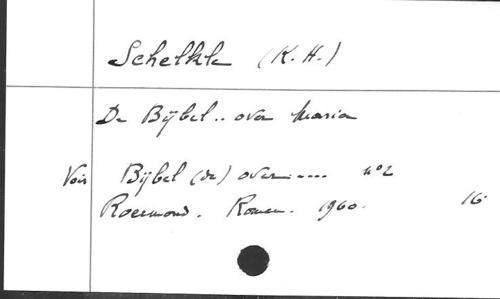 Schelkle (K. H.)
De Bijbel .. over Maria
Voir Bijbel (de) over..... n°2
Roermond. Romen. 1960. 16